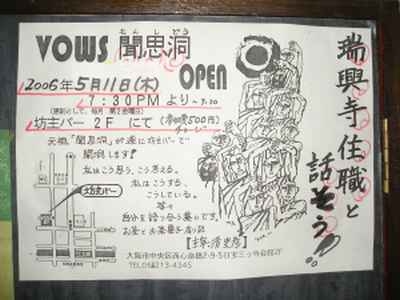 もんしどう
VOWS 聞思洞
OPEN
2006年5月11日(木)
7:30PMより~9:30
(原則として、毎月 第2木曜日)
坊主バー 2F にて
500円
元祖「聞思洞」が遂に坊主バーで
開洞します!
私はこう思う、こう考える。
私はこうする、
こうしている。
等々
自分を語り合う集いです。
お茶とお菓子
坊主バー
瑞興寺住職と
話そう!!
大阪市中央区西心斎橋2-9-5日宝三ッ寺会館2F
TEL06-6213-4345